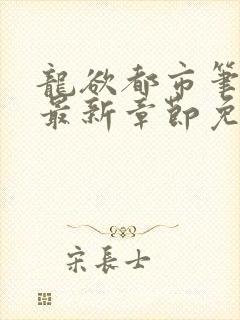 龍欲都市筆
最新章節免
宋長士